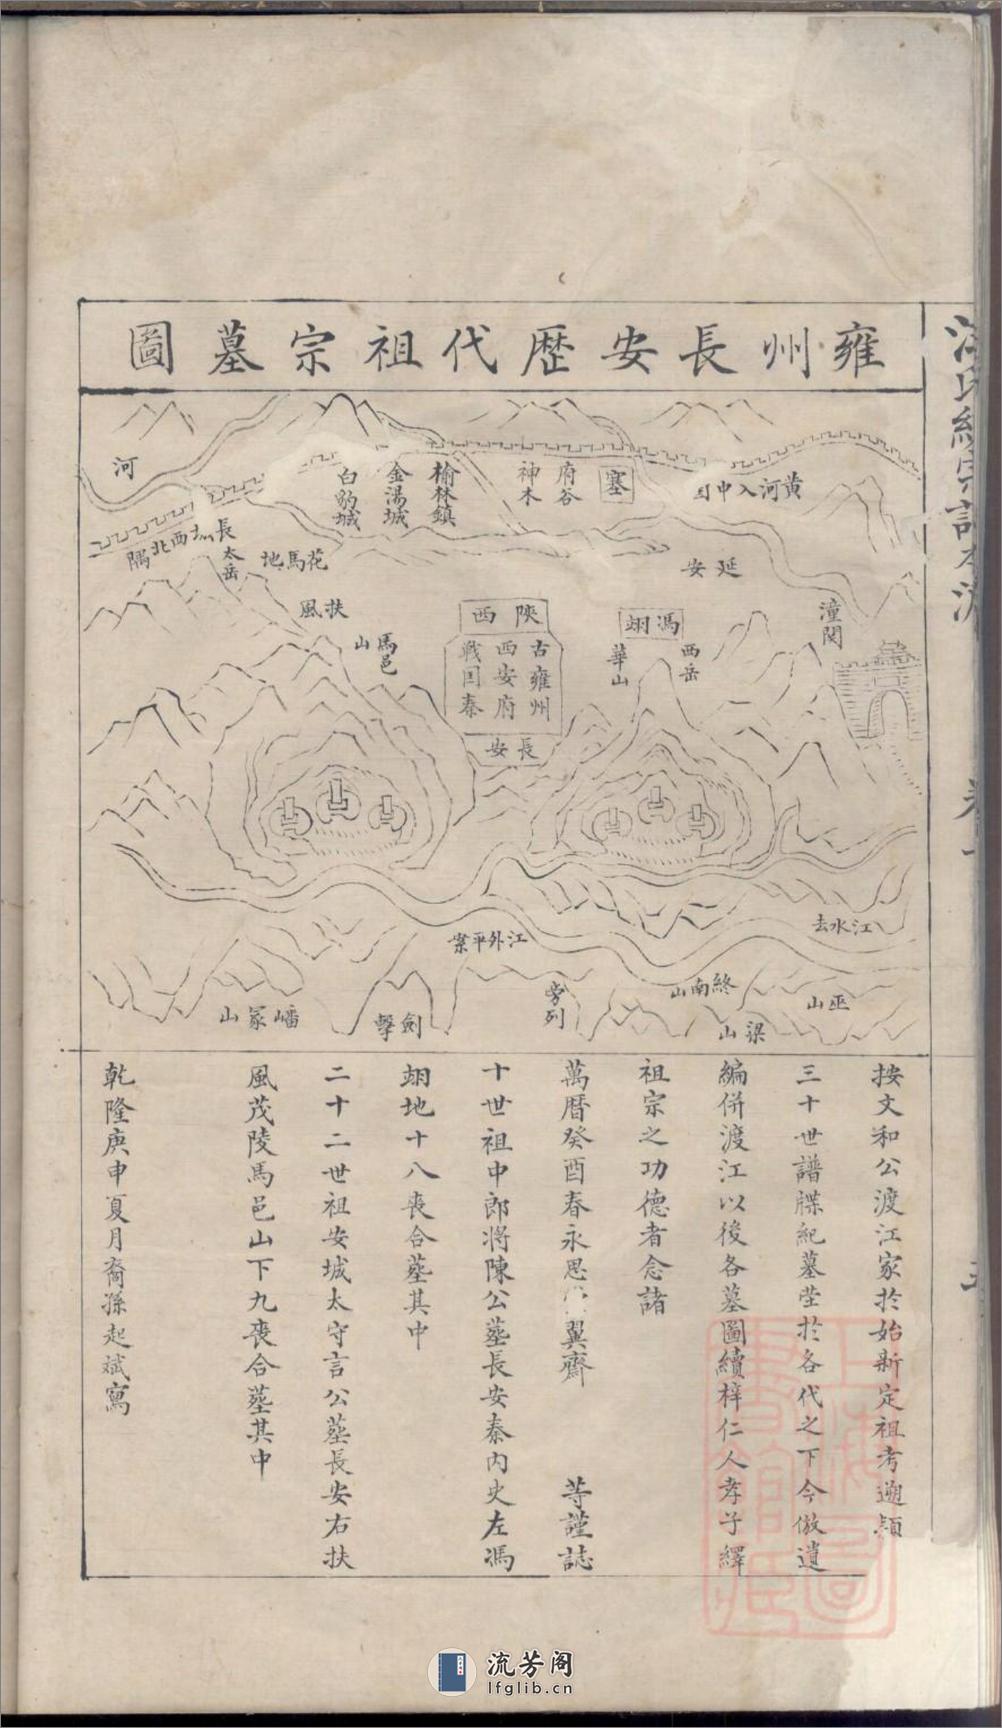 雍州長安歴代祖宗墓圖
黃河入中囯
塞
府谷
神木
榆林鎮
金湯城
白豹城
河
長
西北隅
太岳
花馬池
延安
潼関
馮翊
西岳
華山
陝西
古雍州
西安府
戦囯秦
長安
扶風
馬邑
山
江水去
江外平案
巫山
終南山
梁山
旁列
劍擊
嶓冢山
按文和公渡江家於始新定祖考遡頴
三十世譜牒紀墓茔於各代之下今倣遺
編併渡江以後各墓圖續梓仁人孝子繹
祖宗之功德者念諸
萬曆癸酉春永思 翼齋 等謹誌
十世祖中郎將陳公墓長安秦內史左馮
翊地十八喪合墓其中
二十二世祖安城太守言公墓長安右扶
風茂陵馬邑山下九喪合墓其中
乾隆庚申夏月裔孫起斌寫
卷一
流芳阁
lfglib.cn